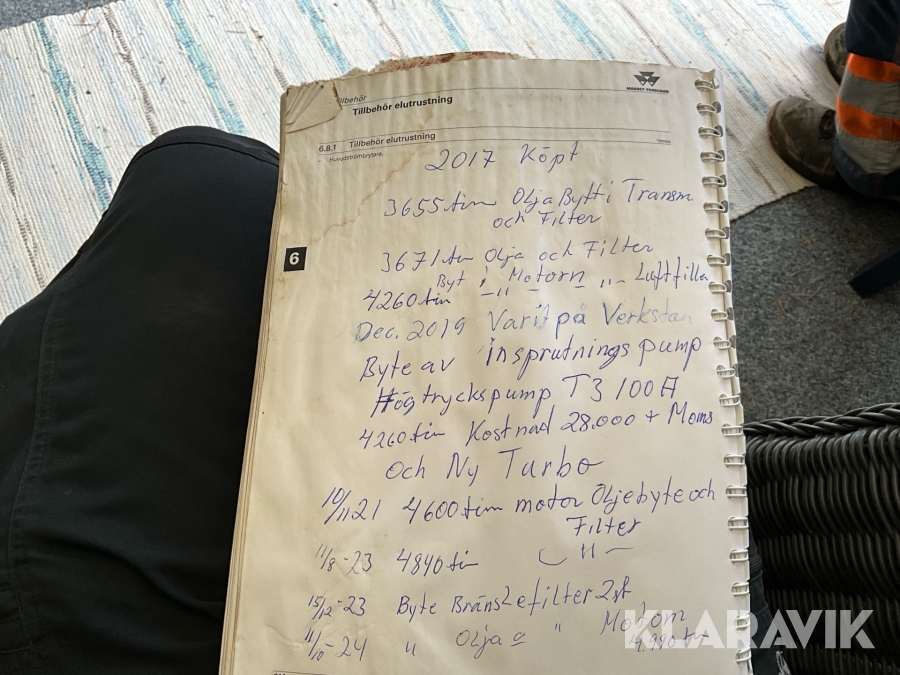 Tillbehör
Tillbehör elutrustning
MASSEY FERGUSON
6.8.1 Tillbehör elutrustning
- Huvudströmbrytare.
2017 Köpt
3655 tim Olja Bytt i Transm.
och Filter
6
3671 tim Olja och Filter
Byt i Motorn " Luftfilter
4260 tim -"-
Dec. 2019 Varit på Verkstan
Byte av insprutningspump
Högtryckspump T3 100 A
4260 tim Kostnad 28.000 + Moms
Och Ny Turbo
10/11 21 4600 tim motor Oljebyte och
Filter
11/8 -23 4840 tim -"-
15/12 -23 Byte Bränslefilter 2st
11/10 -24 " Olja " Motorn
4.990
KLARAVIK